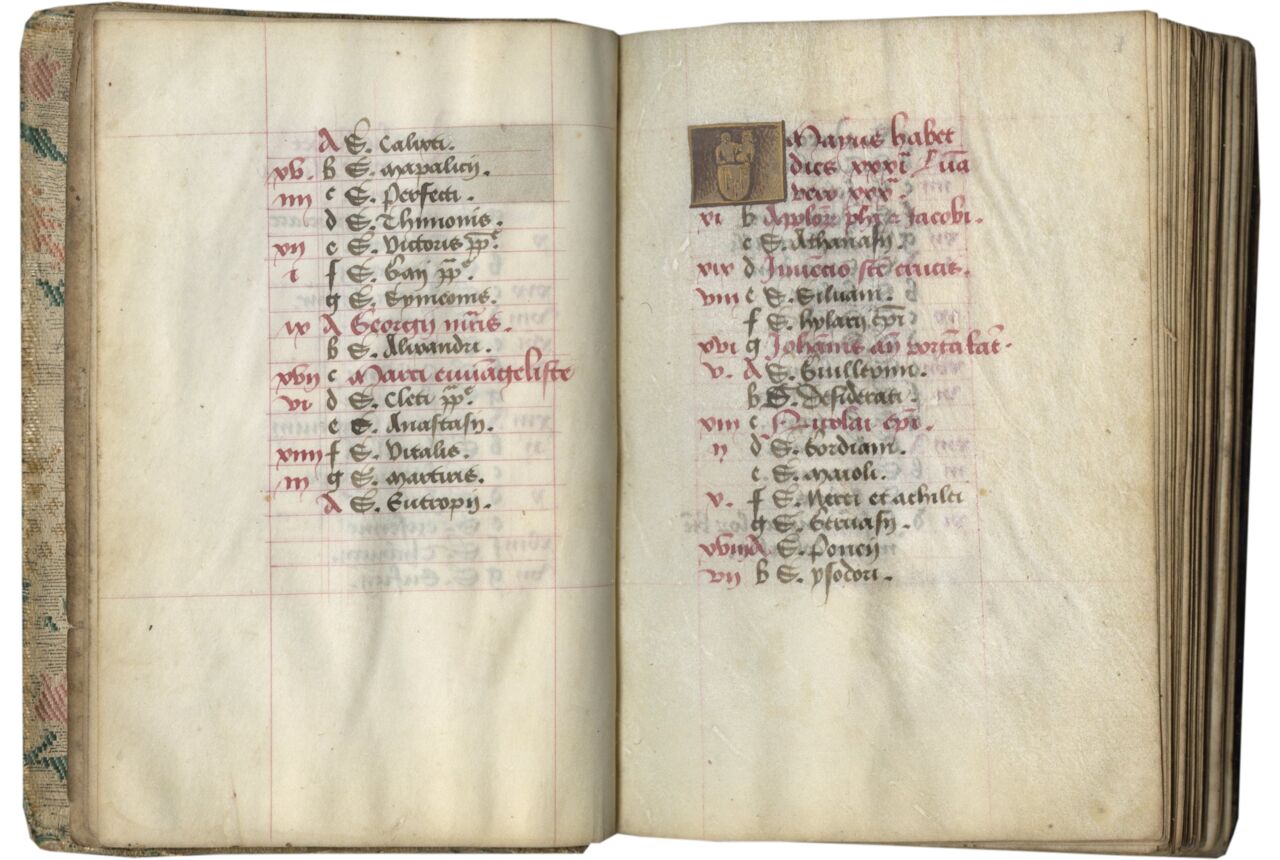 A S. Calixti.
xv. b S. mapalicij.
iiij c S. Perfecti.
d S. Thimonis.
xij e S. Victoris pp̄e.
i f S. Gaij pp̄e.
g S. Symeonis.
ix A Georgij mr̄is.
b S. Alixandri.
xvij c Marci euuāgeliste
vi d S. Cleti pp̄e.
e S. Anastasij.
xiiij f S. Vitalis.
iij g S. martiris.
A S. Eutropij.
Mayus habet
dies xxxi luā
vero xxx.
xi b Ap̄lor̄ ph̄i et Jacobi.
c S. Athanasij
xix d Jnuēcio sc̄e crucis.
viij e S. Siluani.
f S. hylarij ep̄i
xvi g Joh̄anis an̄ portā lat̄.
v. A S. Guillermi.
b S. Desiderati.
xiij c Nicolai ep̄i.
ij d S. Gordiani.
e S. maioli.
v. f S. Nerei et achilei
g S. Geruasij.
xviij A S. Poncij
vij b S. ysodori.